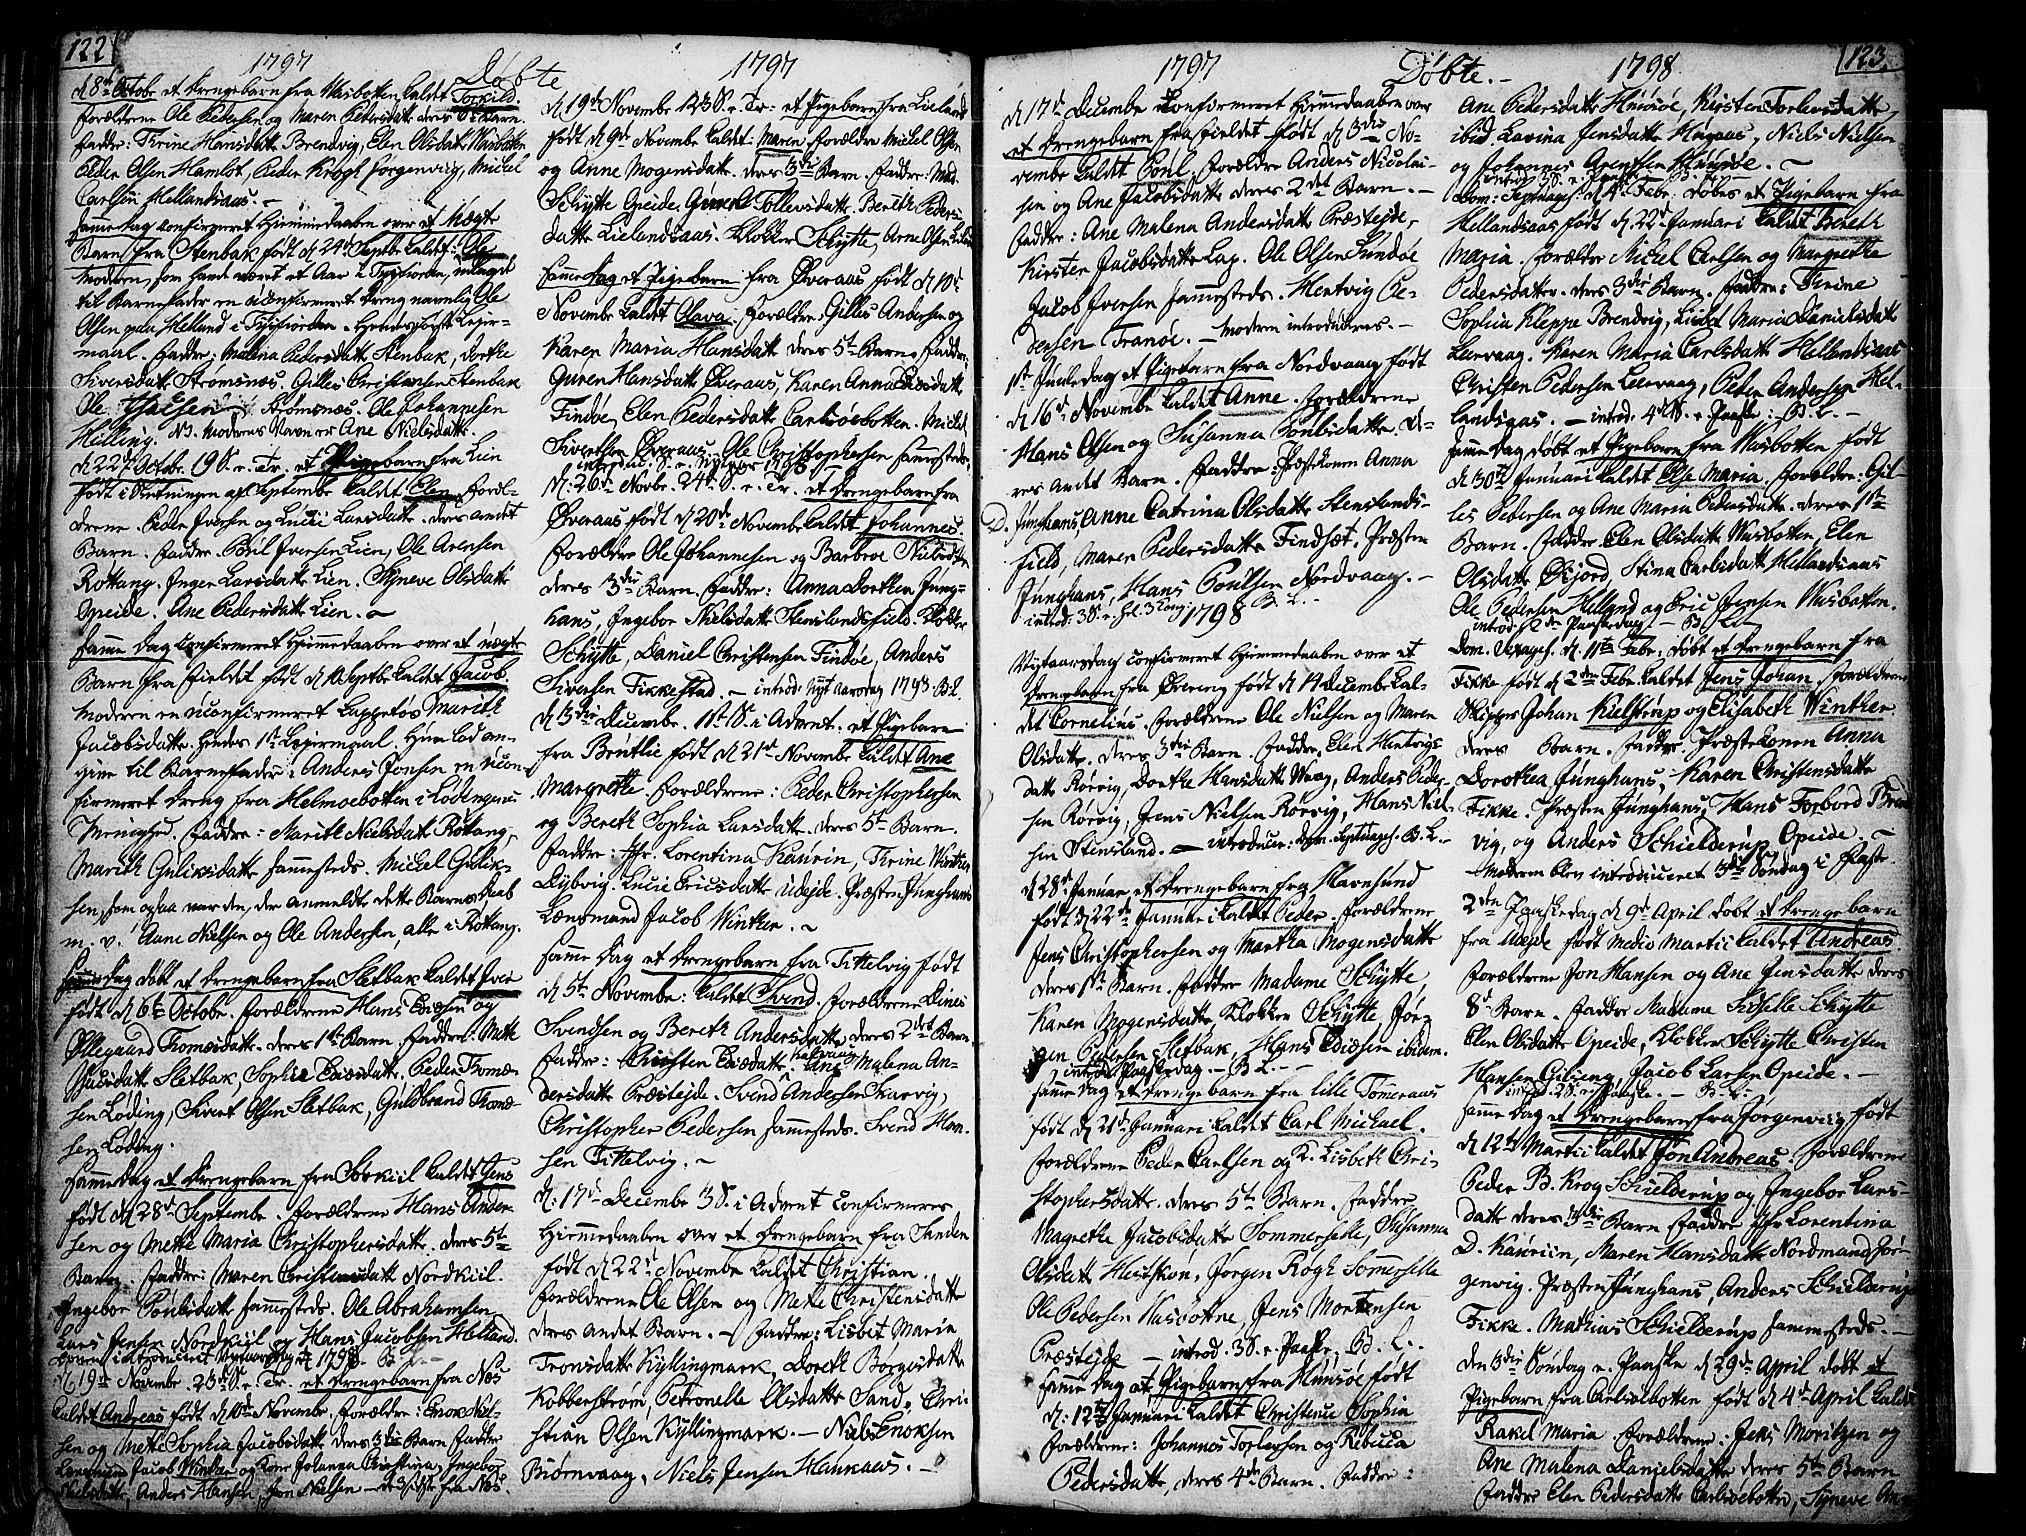 122
1797
Døbte
1797
d 8de Octobr et Drengebarn fra Wasbotten kaldet Torkild.
Forældrene Ole Pedersen og Maren Pedersdatt deres Barn
Faddr: Tirine Hansdatt Brendvig, Elen Olsdatt Wasbotten
Peder Olsen Hamlot, Peder Krogh Jorgenvig, Michel
Carlsen Hellandsaas. -
Samme Dag confirmeret Hiemmedaaben over et Uægte
Barn fra Stenbak født d 24de Septbr kaldet: Ole
Moderen, som havde været et Aar i Tysfiorden, udlagt
til Barnefader en uconfirmeret Dreng navnlig Ole
Olsen paa Helland i Tysfiorden. Hendes første Leyer-
maal. Faddr: Malena Pedersdatt Stenbak, Dorthe
Siversdatt Strømsnes. Gilles Christensen Stenbak
Ole Strømsnes. Ole Johannesen
Helling. NB. Moderens Navn er Ane Nielsdatt.
d 22de Octobr. 19 S. e. Tr. et Pigebarn fra Lien
født i Slutningen af September kaldet Elen Foræl-
drene. Peder Iversen og Lucie Larsdatt. deres andet
Barn. Faddr. Povl Iversen Lien, Ole Arensen
Rottang. Inger Larsdatt Lien. Syneve Olsdatt
Opeide. Ane Pedersdatt Lien. -
Samme Dag confirmeret Hiemmedaaben over et uægte
Barn fra Fieldet født d 10 Septbr kaldet Jacob.
Moderen en uconfirmeret Lappetøs Marith
Jacobsdatt. hendes 1te Leyermaal. Hun lod an-
give til Barnefader: Anders Jonsen en ucon-
firmeret Dreng fra Helmoebotten i Lødingens
Menighed. Faddr: Marith Nielsdatt Rottang,
Marith Guliksdatt sammesteds. Michel Gulik-
sen, som ogsaa var den, der anmeldte dette Barns Daab
m. v. Aane Nielsen og Ole Andersen, alle i Rottang.
Samme Dag døbt et Drengebarn fra Sletbak kaldet Iver
født d 6te Octobr. Forældrene Hans og
Ollegaard Thomæsdatt. deres 1te Barn Faddr: Mette
Sletbak, Sophie. Peder Thomæ-
sen Løding, Sivert Olsen Sletbak, Guldbrand Thomæ-
sen Løding.
Samme Dag et Drengebarn fra Sorkiil kaldet Jens
født d 28de Septembr. Forældrene Hans Ander-
sen og Mette Maria Christophersdatt. deres 5te
Barn. Faddr: Maren Christensdatt Nordkiil.
Ingebor Povlsdatt sammesteds. Ole Abrahamsen
Lars Jensen Nordkiil og Hans Jacobsen Helland.
Konen introduceret Nytaarsdag 1798. B. L.
d 19de Novembr. 23de S. e. Tr. et Drengebarn fra Næs
kaldet Andreas født d 10de Novembr. Forældre: Enok Niel-
sen og Mette Sophia Jacobsdatt deres 3die Barn Faddr
Lænsmand Jacob Winther og Kone Johanna Christina, Ingebor
Nielsdatt, Anders Hansen, Jon Nielsen - de fra Næs.
d 19de Novembr 23 S. e. Tr: et Pigebarn fra Lieland
født d 9de Novembr kaldet: Maren Forældre Michel Olsen
og Anne Mogensdatt. deres 3die Barn. Faddr: Mad.
Schytte Opeide. Gunel Tollevsdatt. Bereth Peders-
datt Lielandsaas. Klokker Schytte, Arne Olsen
Samme Dag et Pigebarn fra Øveraas født d 10de
Novembr kaldet Olava. Forældre: Gilles Andersen og
Karen Maria Hansdatt deres 5te Barn. Faddr:
Guren Hansdatt Øveraas, Karen Anna
Findøe, Elen Pedersdatt Carlsøebotten. Michel
Sivertsen Øveraas. Ole Christophersen sammesteds.
introd: S. e. Nytaar 1798
d: 26de Novbr. 24de S. e. Tr. et Drengebarn fra
Øveraas født d 20de Novembr kaldet Johannes.
Forældre Ole Johannesen og Barbroe Nielsdatt
deres 3die Barn. Faddr: Anna Dorthea Jung-
hans, Ingebor Nielsdatt Stenslandsfield. Klokker
Schytte, Daniel Christensen Findøe, Anders
Siversen Fikkestad. - introd: Nyt aarsdag 1798. B.L.
d 3die Decembr. 1te S. i Advent. et Pigebarn
fra Brøttlie født d 21de Novembr kaldet Ane
Margrethe. Forældrene: Peder Christophersen
og Bereth Sophia Larsdatt. deres 5te Barn.
Faddr: Lorentina Kaurin, Tirine Winther
Dybvig. Lucie Ericsdatt Udejde. Præsten Junghans
Lænsmand Jacob Winther. -
Samme Dag et Drengebarn fra Tittelvig født
d 5te Novembr: kaldet Svend. Forældrene Dines
Svendsen og Bereth Andersdatt deres 2det Barn
Faddr: Ane Malena An-
dersdatt Præstejde. Svend Andersen Skarvig,
Christopher Pedersen sammesteds. Svend Han-
sen Tittelvig. -
d: 17de Decembr 3 S. i Advent confirmeres
Hiemmedaaben over et Drengebarn fra Sanden
født d 22de Novembr kaldet Christian.
Forældrene Ole Olsen og Mette Christensdatt
deres andet Barn. - Faddr: Lisbet Maria
Tronsdatt Kyllingmark, Doreth Børgesdatt
Kobberstrøm, Petronelle Olsdatt Sand, Chri-
stian Olsen Kyllingmark. - Niels Enoksen
Biørnvaag, Niels Jensen Haukaas. -
1797
Døbte. -
1798
123.
d 17de Decembr Confirmeret Hiemmedaaben over
et Drengebarn fra Fieldet født d 3die No-
vembr kaldet Povl, Forældre Anders Nicolai-
sen og Ane Jacobsdatt deres 2det Barn. -
Faddr: Ane Malena Andersdatt Præstejde,
Kirsten Jacobsdatt Lap. Ole Olsen Sundøe
Jacob Iversen sammesteds. Hertvig Pe-
dersen Tranøe. - Moderen introduceres. -
1ste Juuledag et Pigebarn fra Nordvaag født
d 16de Novembr kaldet Anne. Forældrene
Hans Olsen og Susanna Povlsdatt. De-
res andet Barn. Faddr: Præstekonen Anna
D. Junghans, Anne Catrina Olsdatt Stenslands-
field, Maren Pedersdatt Findsæt. Præsten
Junghans, Hans Povlsen Nordvaag. -
introd: 3 S. e. Hel. 3 Kong. 1798 B. L. -
Nytaarsdag confirmeret Hiemmedaaben over et
Drengebarn fra Ørering født d 14 December kal-
det Cornelius. Forældrene Ole Nielsen og Maren
Olsdatt. deres 3die Barn. Faddr, Elen Hertvigs
datt Rørvig, Dorthe Hansdatt Waag, Anders Peder-
sen Rørvig, Jens Nielsen Rørvig, Hans Niel-
sen Stensland. - introducer: Dom: Septuages. B. L. -
d 28de Januar et Drengebarn fra Havnsund
født d 22de Januari kaldet Peder. Forældrene
Jens Christophersen og Martha Mogensdatt
deres 1te Barn. Faddr Madame Schytte,
Karen Mogensdatt, Klokker Schytte Jør-
gen Pedersen Sletbak, Hans ibidem.
introd: Paaskedag. - B L. -
Samme Dag et Drengebarn fra Lille Tømmeraas
født d 21de Januari kaldet Carl Michael.
Forældrene Peder Carlsen og K. Lisbeth Chri-
stophersdatt. deres 5te Barn. Faddr
Magrethe Jacobsdatt Sommerselle, Susanna
Olsdatt, Jørgen Rogh Somerselle
Ole Pedersen Husbotne, Jens Mortensen
Præstejde - introd. 3 S. e. Paaske. B. L. -
Samme Dag et Pigebarn fra Huusøe født
d: 12te Januari kaldet Christence Sophia
Forældrene: Johannes Torlevsen og Rebecca
Pedersdatt, deres 4de Barn. Faddr:
Ane Pedersdatt Huusøe, Kirsten Torlevsdatt
ibid. Lavina Jensdatt, Niels Nielsen
og Johannes Arentsen Huusøe. -
introd. 3 S. e. Paaske. B. L.
Dom: Septuages: d 4de Febr. døbes et Pigebarn fra
Hellandsaas født d: 22de Januari kaldet Bereth
Maria. Forældre Michel Carlsen og Margrethe
Pedersdatt. deres 3die Barn. Faddr: Tirine
Sophia Kleppe Brendvig, Lisbet Maria Danielsdatt
Leervaag. Karen Maria Carlsdatt Hellandsaas
Christen Pedersen Leervaag, Peder Andersen Hel-
landsaas. - introd. 4de S. e. Paaske: B. L. -
Samme Dag døbt et Pigebarn fra Wasbotten født
d 30te Januari kaldet Else Maria. Forældre: Gil-
les Pedersen og Ane Maria Pedersdatt. deres 1te
Barn. Faddr Elen Olsdatt Wasbotten, Elen
Olsdatt, Stina Carlsdatt Hellandsaas
Ole Pedersen Helland og Eric Jensen Wasbotten.
introd: 2den Paaskedag - B L.
Dom. Sexages. d 11te Febr: døbt et Drengebarn fra
Fikke født d 2den Febr kaldet Jens Johan. Forældrene
Skipper Johan Kielstrup og Elisabeth Winther
deres Barn. Faddr. Præstekonen Anna
Dorothea Junghans, Karen Christensdatt
Fikke. Præsten Junghans, Hans Forbord Brend-
vig, og Anders Schielderup Opeide. -
Moderen blev introduceret 3die Søndag i Faste
2den Paaskedag d 9de April døbt et Drengebarn
fra Udejde født medio Martii kaldet Andreas.
Forældrene Jon Hansen og Ane Jensdatt deres
8de Barn. Faddr Madame Sidselle Schytte
Elen Olsdatt Opeide, Klokker Schytte Christen
Hansen, Jacob Larsen Opeide. -
introd. 2 S. e. Paaske. - B. L.
Samme Dag et Drengebarn fra Jørgenvig født
d 12te Martii kaldet Jon Andreas. Forældrene
Peder B. Krog Schielderup og Ingebor Lars-
datt deres 3die Barn Faddr Lorentina
D. Kaurin, Maren Hansdatt Nordmand Jør-
genvig. Præsten Junghans, Anders Schielderup
Fikke. Mathias Schielderup sammesteds. -
Den 3die Søndag e. Paaske d 29de April døbt et
Pigebarn fra Carlsøebotten født d 4de April kaldet
Rakel Maria Forældrene: Jens Moritzen og
Ane Malena Danielsdatt deres 5te Barn
Faddr Elen Pedersdatt Carlsøebotten, Syneve An-